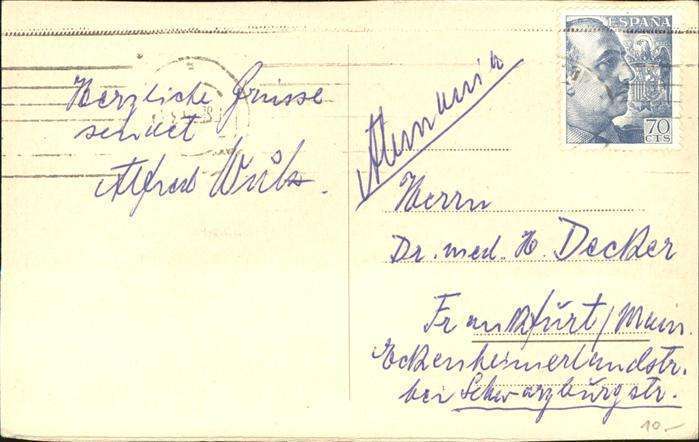 Herzliche Grüsse
sendet
Alfred
ESPAÑA
70
CTS
Alemania
Herrn
Dr. med. H. Decker
Frankfurt/Main.
Eckenheimerlandstr.
bei Schwarzburgstr.
10.-